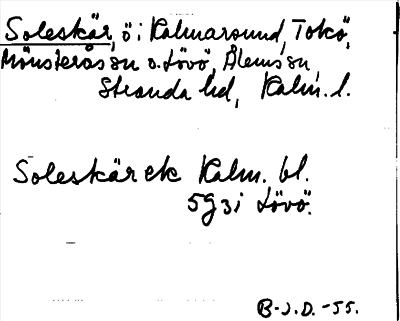 Soleskär, ö i Kalmarsund, Tokö,
Mönsterås sn o. Lövö, Ålems sn,
Stranda hd, Kalm. l.
Soleskär ek Kalm. bl.
5g3i Lövö.
B-J.D.-55.